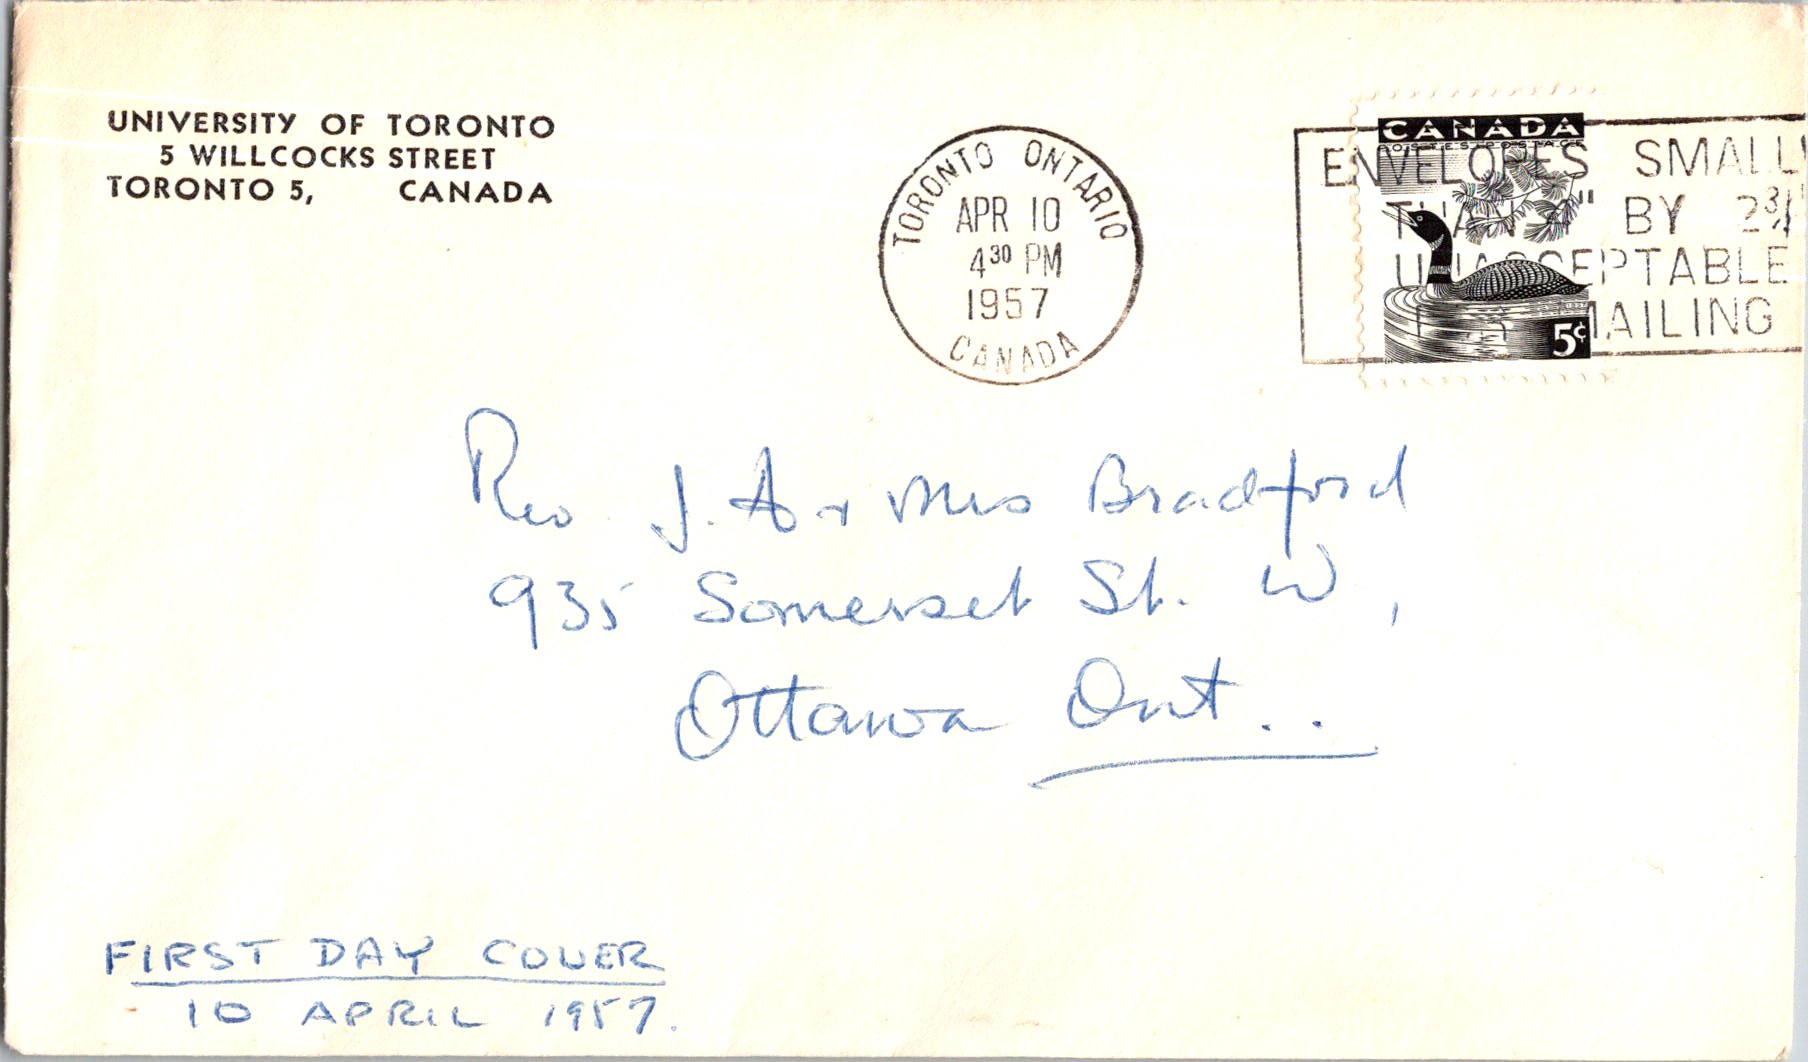 UNIVERSITY OF TORONTO
5 WILLCOCKS STREET
TORONTO 5, CANADA
TORONTO ONTARIO
APR 10
4³⁰ PM
1957
CANADA
CANADA
POSTES POSTAGE
5¢
ENVELOPES SMALL
THAN 4" BY 2¾"
UNACCEPTABLE
FOR MAILING
Rev. J. A + Mrs Bradford
935 Somerset St. W,
Ottawa Ont..
FIRST DAY COVER
10 APRIL 1957.